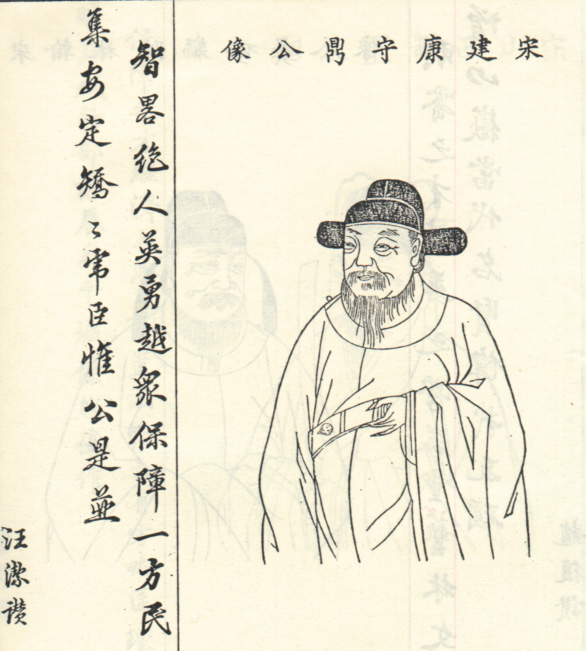 宋建康守鼎公像
智畧絶人英勇越衆保障一方民
集安定矯〻帝臣惟公是並
汪潔讃